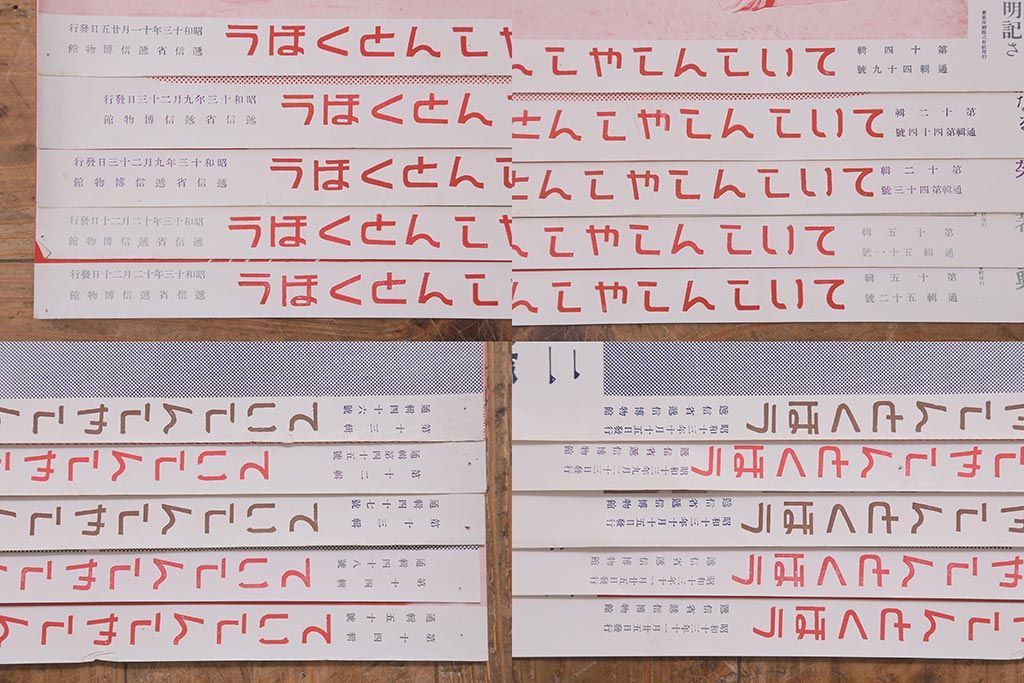 昭和十三年十一月廿五日發行
遞信省遞信博物館
やしんとくほう
昭和十三年九月二十三日發行
遞信省遞信博物館
んとくほう
昭和十三年九月二十三日發行
遞信省遞信博物館
んとくほう
昭和十三年十二月二十日發行
遞信省遞信博物館
しんとくほう
昭和十三年十二月二十日發行
遞信省遞信博物館
しんとくほう
明記さ
第十四輯
通輯四十九號
ていしんしやしん
第十二輯
通輯第四十四號
ていしんしやしんと
第十二輯
通輯第四十三號
ていしんしやしん
第十五輯
通輯五十一號
ていしんしやしん
第十五輯
通輯五十二號
ていしんしやしん
第十三輯
通輯四十六號
ていしんしやし
第十二輯
通輯第四十五號
ていしんしや
第十三輯
通輯四十七號
ていしんしやし
第十四輯
通輯四十八號
ていしんしやし
第十四輯
通輯五十號
ていしんしやし
昭和十三年十月十五日發行
遞信省遞信博物館
やしんとくほう
昭和十三年九月二十三日發行
遞信省遞信博物館
しやしんとくほう
昭和十三年十月十五日發行
遞信省遞信博物館
やしんとくほう
昭和十三年十一月廿五日發行
遞信省遞信博物館
やしんとくほう
昭和十三年十一月廿五日發行
遞信省遞信博物館
やしんとくほう